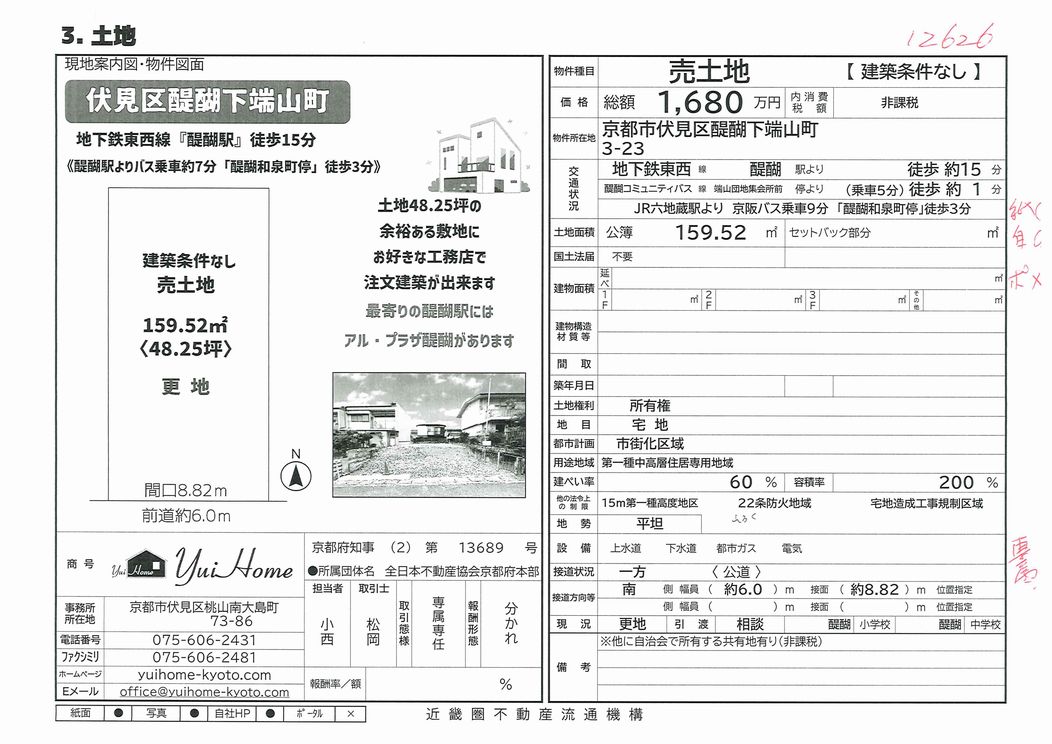 3. 土地
12626
現地案内図・物件図面
伏見区醍醐下端山町
地下鉄東西線『醍醐駅』徒歩15分
《醍醐駅よりバス乗車約7分「醍醐和泉町停」徒歩3分》
土地48.25坪の
余裕ある敷地に
お好きな工務店で
注文建築が出来ます
最寄りの醍醐駅には
アル・プラザ醍醐があります
建築条件なし
売土地
159.52㎡
〈48.25坪〉
更 地
N
間口8.82m
前道約6.0m
商 号
Yui Home
Yui Home
京都府知事 (2) 第 13689 号
●所属団体名 全日本不動産協会京都府本部
事務所所在地 京都市伏見区桃山南大島町
73-86
電話番号 075-606-2431
ファクシミリ 075-606-2481
ホームページ yuihome-kyoto.com
Eメール office@yuihome-kyoto.com
担当者 小西
取引士 松岡
取引態様 専属専任
報酬形態 分かれ
報酬率/額 %
物件種目 売土地 【 建築条件なし 】
価 格 総額 1,680 万円 内消費税額 非課税
物件所在地 京都市伏見区醍醐下端山町
3-23
交通状況
地下鉄東西 線 醍醐 駅より 徒歩 約15 分
醍醐コミュニティバス 線 端山団地集会所前 停より (乗車5分) 徒歩 約 1 分
JR六地蔵駅より 京阪バス乗車9分 「醍醐和泉町停」徒歩3分
土地面積 公簿 159.52 ㎡ セットバック部分 ㎡
国土法届 不要
建物面積 延べ ㎡
1F ㎡ 2F ㎡ 3F ㎡ その他 ㎡
建物構造材質等
間 取
築年月日
土地権利 所有権
地 目 宅 地
都市計画 市街化区域
用途地域 第一種中高層住居専用地域
建ぺい率 60 % 容積率 200 %
他の法令上の制限 15m第一種高度地区 22条防火地域 宅地造成工事規制区域
地 勢 平坦
設 備 上水道 下水道 都市ガス 電気
接道状況 一方 〈 公道 〉
接道方向等 南 側 幅員 ( 約6.0 ) m 接面 ( 約8.82 ) m 位置指定
側 幅員 ( ) m 接面 ( ) m 位置指定
現 況 更地 引 渡 相談 醍醐 小学校 醍醐 中学校
備 考 ※他に自治会で所有する共有地有り(非課税)
紙面 ● 写真 ● 自社HP ● ポータル ×
近畿圏不動産流通機構